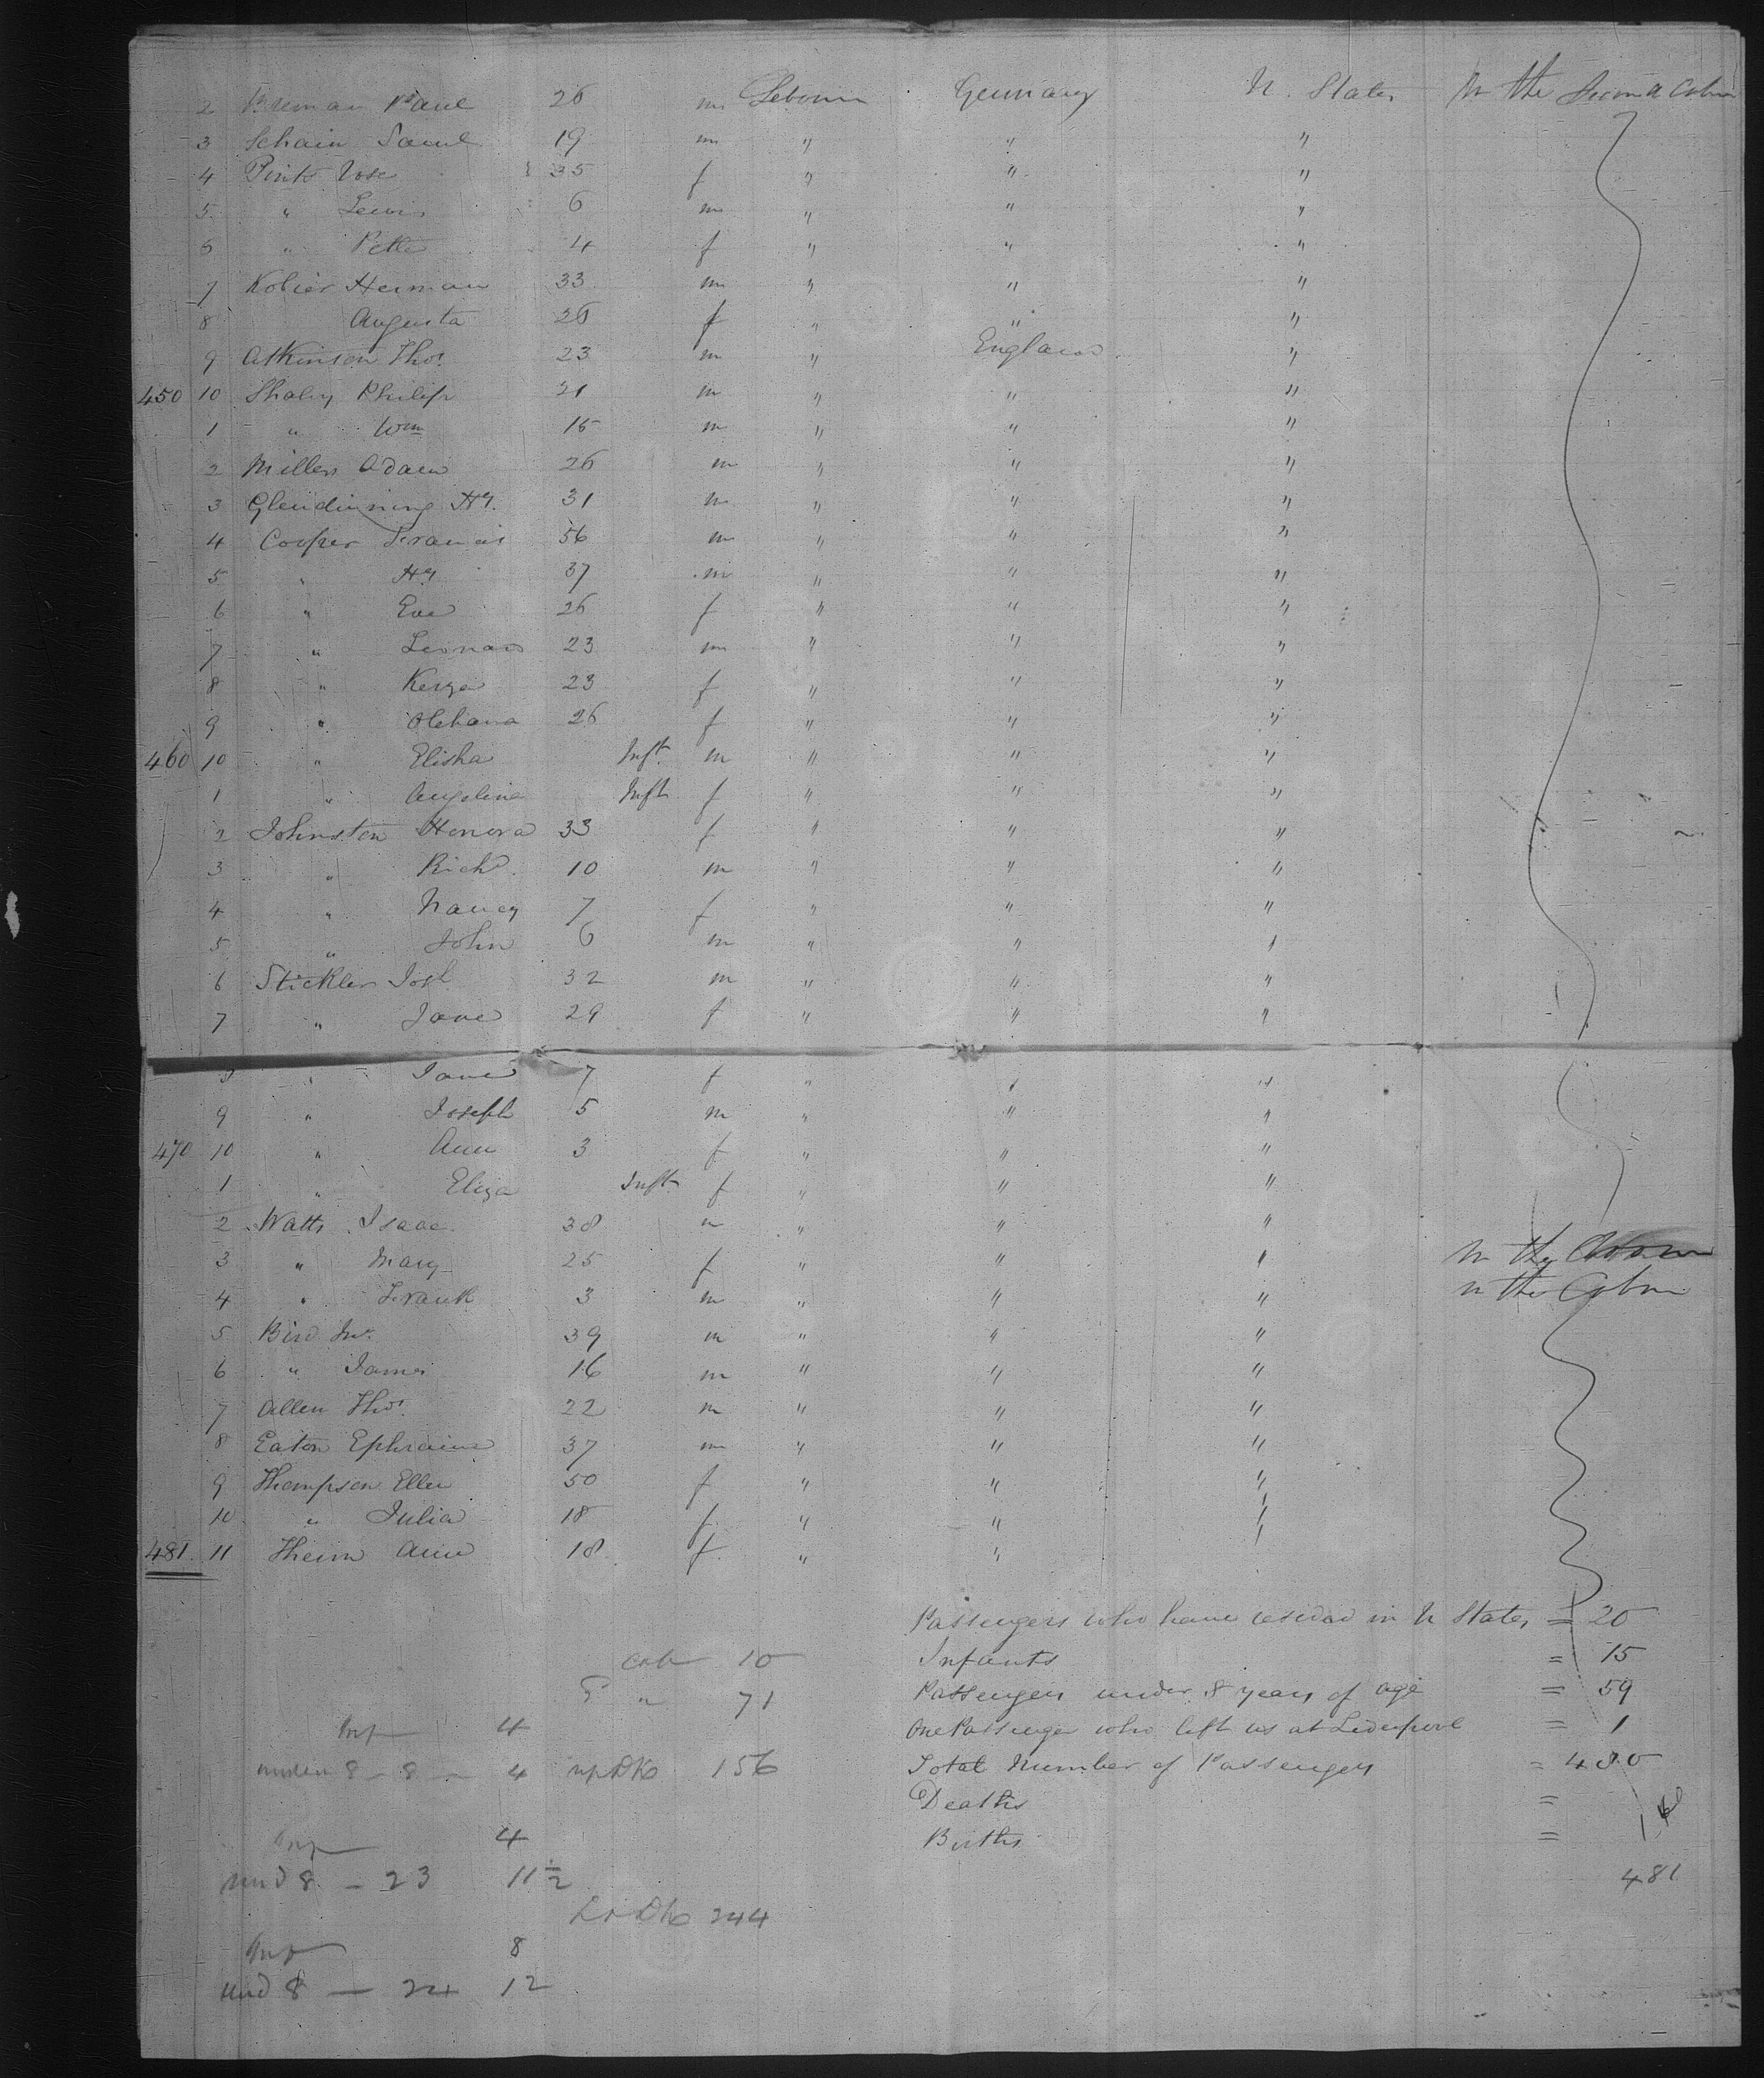 2 Breman Paul 26 m Labourer Germany U. States In the Second Cabin
3 Schain Saml 19 m " " "
4 Pink Rose 35 f " " "
5 " Lewis 6 m " " "
6 " 4 f " " "
7 Herman 33 m " " "
8 Augusta 26 f " " "
9 Atkinson Thos. 23 m " England "
450 10 Philip 21 m " " "
1 " Wm 15 m " " "
2 Millen Adam 26 m " " "
3 Glendinning Hy. 31 m " " "
4 Cooper Francis 56 m " " "
5 " Hy 37 m " " "
6 " Eva 26 f " " "
7 " Leonard 23 m " " "
8 " Kerza 23 f " " "
9 " 26 f " " "
460 10 " Elisha Inft. m " " "
1 " Angelina Inft. f " " "
2 Johnston Honora 33 f " " "
3 " Richd. 10 m " " "
4 " Nancy 7 f " " "
5 " John 6 m " " "
6 Stickler Josh 32 m " " "
7 " Jane 29 f " " "
8 " Jane 7 f " " "
9 " Joseph 5 m " " "
470 10 " Ann 3 f " " "
1 " Eliza Inft. f " " "
2 Watts Isaac 38 m " " "
3 " Mary 25 f " " " In the
4 " Frank 3 m " " " In the Cabin
5 Bird Jno. 39 m " " "
6 " James 16 m " " "
7 Allen Thos. 22 m " " "
8 Eaton Ephraim 37 m " " "
9 Thompson Ellen 50 f " " "
10 " Julia 18 f " " "
481 11 Ann 18 f " "
Passengers who have resided in U States = 20
cab 10 Infants = 15
" 71 Passengers under 8 years of age = 59
Inf 4 One Passenger who left us at Liverpool = 1
under 8 - 8 - 4 up Dk 156 Total Number of Passengers = 480
Deaths =
Inf 4 Births = 1
und 8 - 23 11 1/2 481
Lr Dk 244
Inf 8
und 8 - 24 12